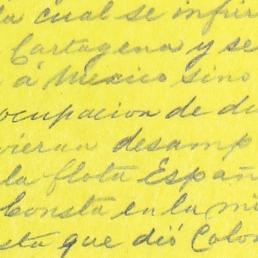 la cual se infir
Cartagena y se
á Mexico sino
ocupacion de du
vieran desamp
la flota Españ
Consta en la mi
sta que dió Colon